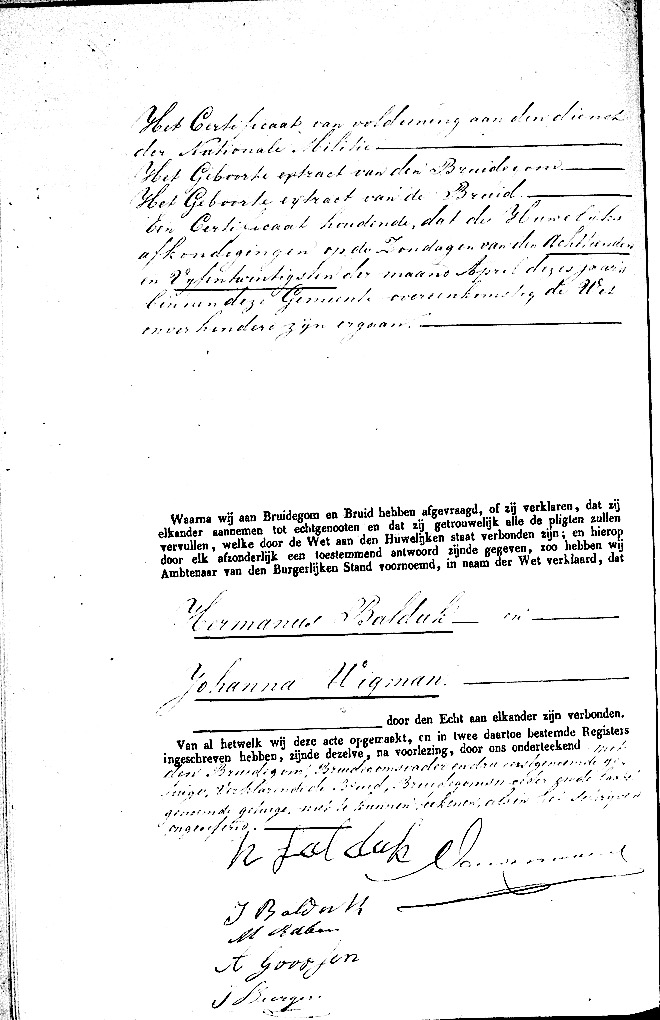 Het Certificaat van voldoening aan den dienst
der Nationale Militie
Het Geboorte extract van den Bruidegom
Het Geboorte extract van de Bruid
Een Certificaat houdende, dat de Huwelijks
afkondigingen op de Zondagen van den Achttienden
en Vyfentwintigsten der maand April dezes jaars
binnen deze Gemeente overeenkomstig de Wet
onverhinderd zijn ergaan.
Waarna wij aan Bruidegom en Bruid hebben afgevraagd, of zij verklaren, dat zij
elkander aannemen tot echtgenooten en dat zij getrouwelijk alle de pligten zullen
vervullen, welke door de Wet aan den Huwelijken staat verbonden zijn; en hierop
door elk afzonderlijk een toestemmend antwoord zijnde gegeven, zoo hebben wij
Ambtenaar van den Burgerlijken Stand voornoemd, in naam der Wet verklaard, dat
Hermanus Balduk en
Johanna Wigman.
door den Echt aan elkander zijn verbonden.
Van al hetwelk wij deze acte opgemaakt, en in twee daartoe bestemde Registers
ingeschreven hebben, zijnde dezelve, na voorlezing, door ons onderteekend met
den Bruidegom, Bruidegomsvader en drie eerstgenoemde ge-
tuige, Verklarende de Bruid, Bruidegomsmoeder en de laatst
genoemde getuige, niet te kunnen teekenen, als in het schrijven
onervaren.
H Balduk
J Balduk
A Goossen